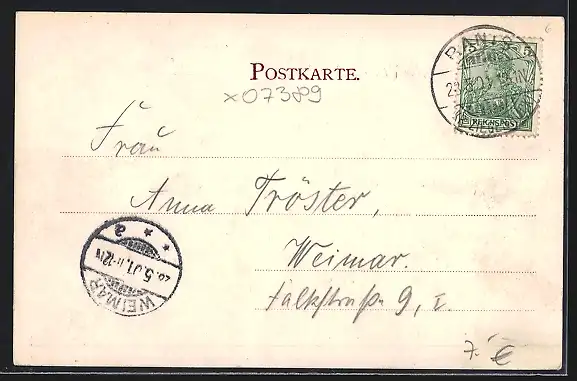 POSTKARTE.
x07389
RANIS
REICHSPOST
Frau
Anna Tröster,
Weimar.
Falkstraße 9, I.
WEIMAR
26.5.01.11-12N
a
7.- €
6